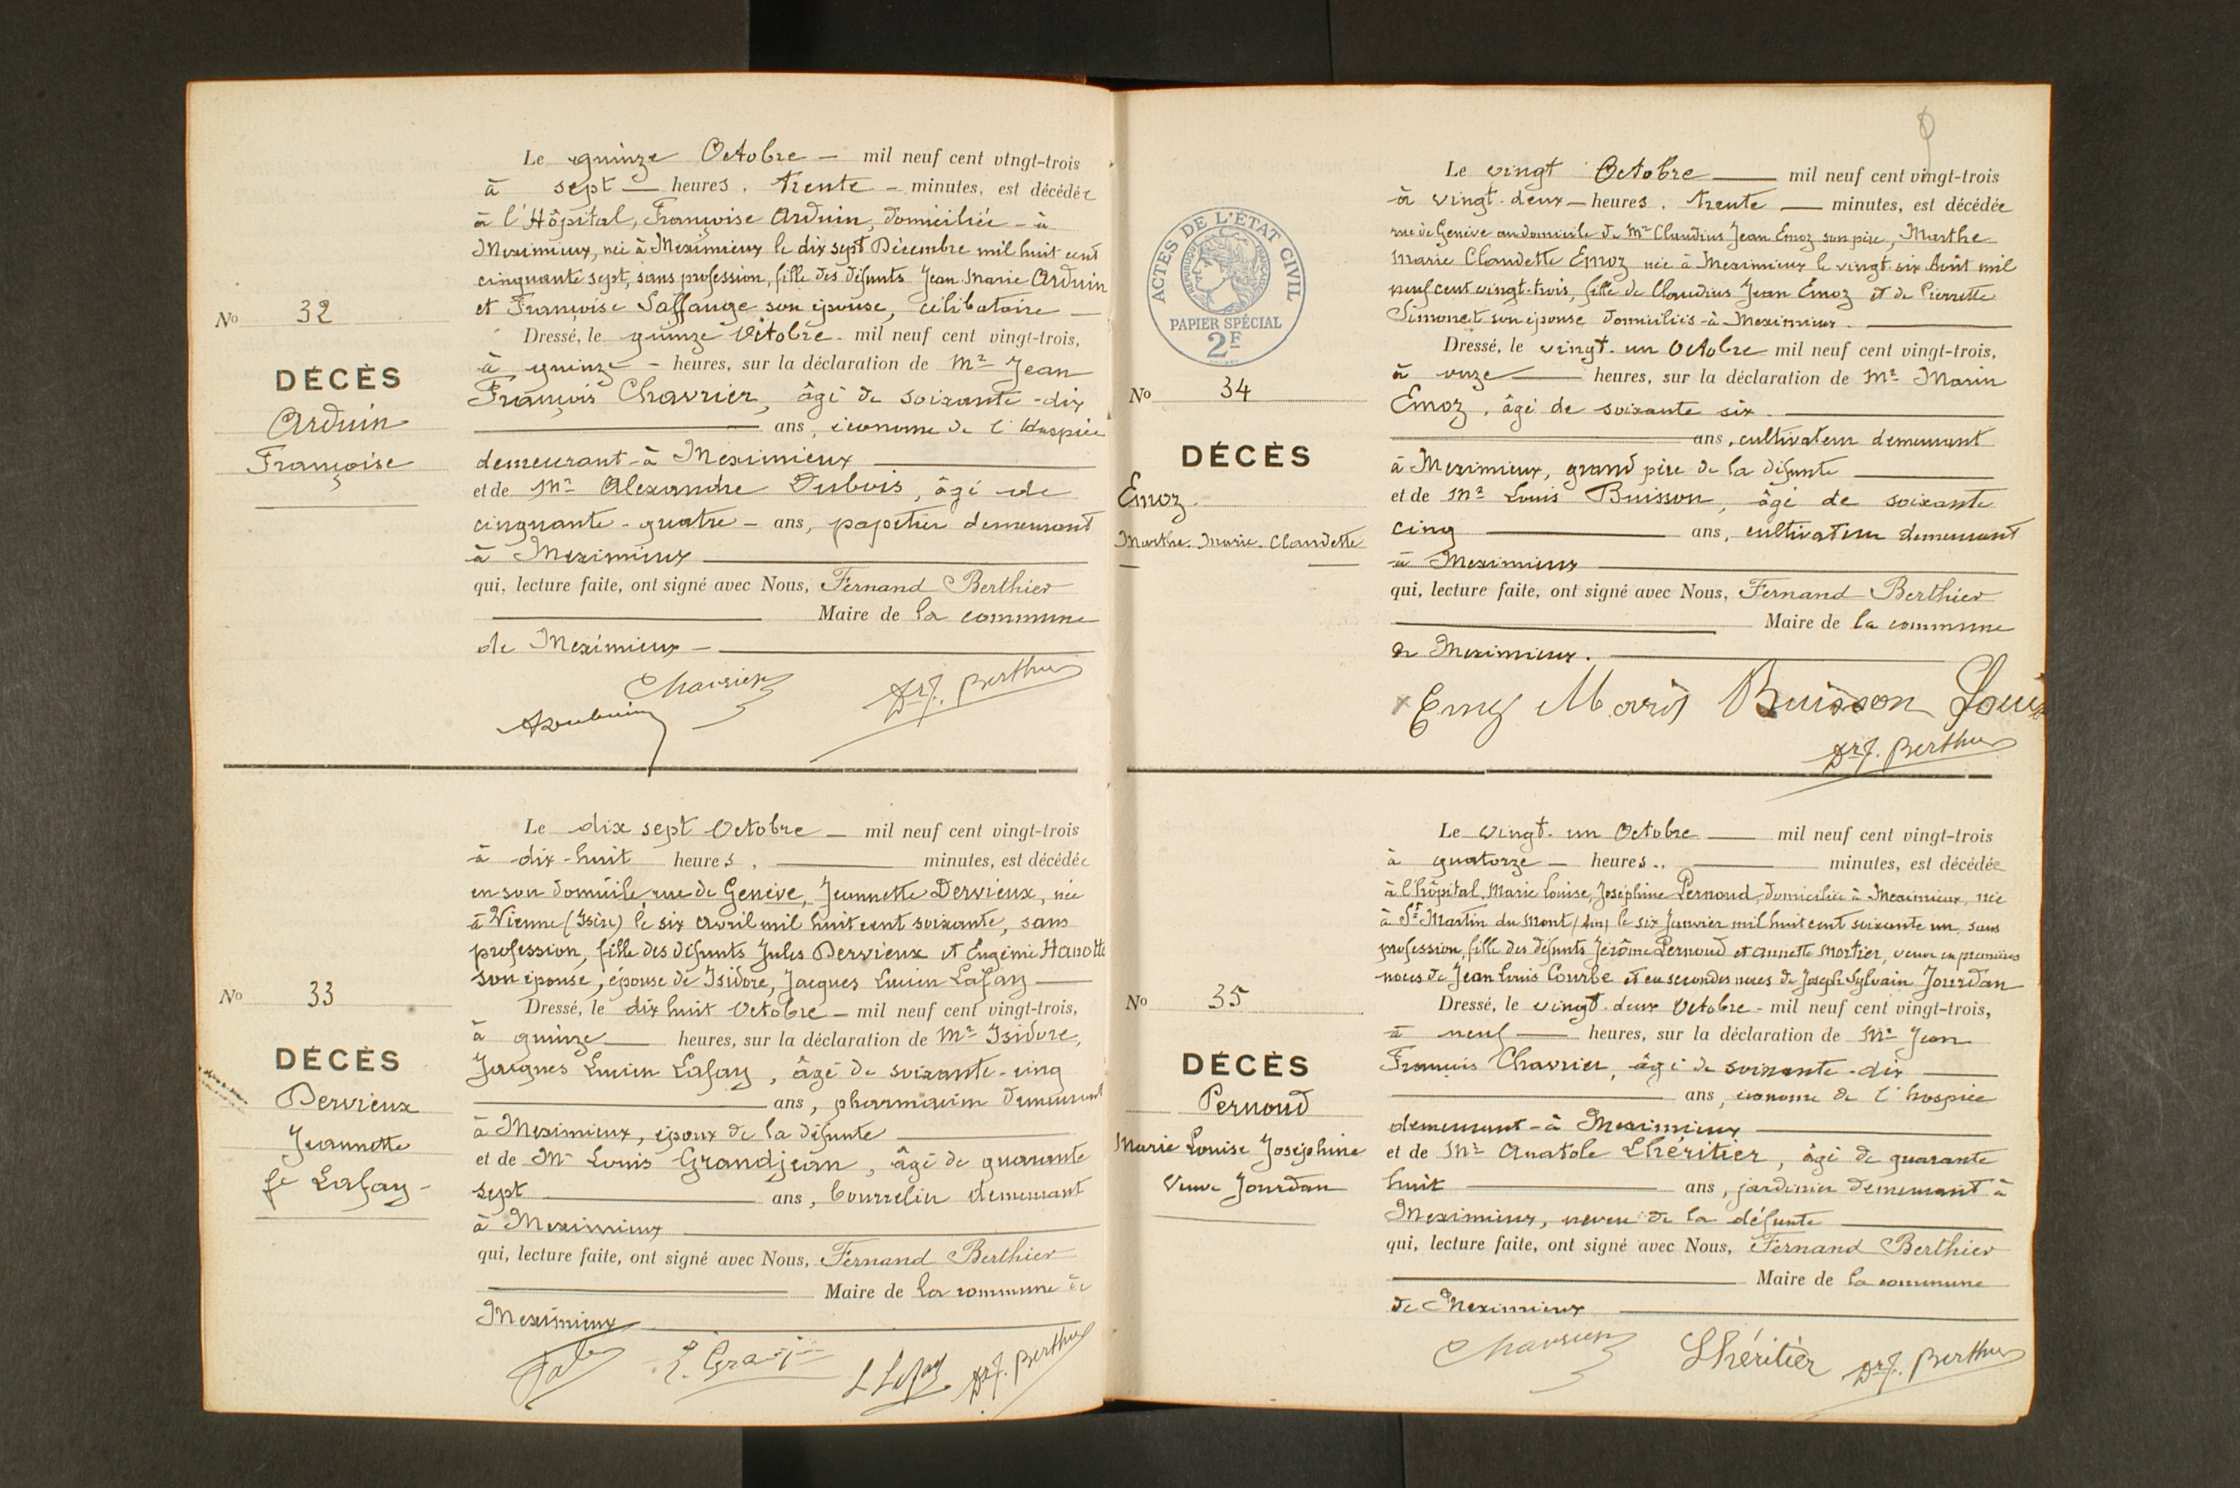 Le quinze Octobre — mil neuf cent vingt-trois
à sept — heures, trente — minutes, est décédée
à l'Hôpital, Françoise Arduin, domiciliée à
Meximieux, née à Meximieux le dix sept Décembre mil huit cent
cinquante sept, sans profession, fille des défunts Jean Marie Arduin
et Françoise Laffange son épouse, célibataire —
Dressé, le quinze Octobre mil neuf cent vingt-trois,
à quinze — heures, sur la déclaration de Mr Jean
François Chavrier, âgé de soixante-dix
ans, économe de l'Hospice
demeurant à Meximieux
et de Mr Alexandre Dubois, âgé de
cinquante-quatre — ans, papetier demeurant
à Meximieux
qui, lecture faite, ont signé avec Nous, Fernand Berthier
Maire de la commune
de Meximieux —
No 32
DÉCÈS
Arduin
Françoise
Chavrier
Dr F. Berthier
Le dix sept Octobre — mil neuf cent vingt-trois
à dix-huit heures, — minutes, est décédée
en son domicile, rue de Genève, Jeannette Dervieux, née
à Vienne (Isère) le six avril mil huit cent soixante, sans
profession, fille des défunts Jules Dervieux et Eugénie Hanotte
son épouse, épouse de Isidore, Jacques Lucien Lafay —
Dressé, le dix huit Octobre — mil neuf cent vingt-trois,
à quinze — heures, sur la déclaration de Mr Isidore,
Jacques Lucien Lafay, âgé de soixante-cinq
ans, pharmacien demeurant
à Meximieux, époux de la défunte
et de Mr Louis Grandjean, âgé de quarante
sept — ans, bourrelier demeurant
à Meximieux
qui, lecture faite, ont signé avec Nous, Fernand Berthier
Maire de la commune de
Meximieux
No 33
DÉCÈS
Dervieux
Jeannette
fe Lafay
L Lafay Dr F. Berthier
ACTES DE L'ÉTAT CIVIL
RÉPUBLIQUE FRANÇAISE
PAPIER SPÉCIAL
2F
Le vingt Octobre — mil neuf cent vingt-trois
à vingt-deux — heures, trente — minutes, est décédée
rue de Genève au domicile de Mr Claudius Jean Emoz son père, Marthe
Marie Claudette Emoz née à Meximieux le vingt-six Août mil
neuf cent vingt-trois, fille de Claudius Jean Emoz et de Pierrette
Simonet son épouse domiciliés à Meximieux. —
Dressé, le vingt-un Octobre mil neuf cent vingt-trois,
à onze — heures, sur la déclaration de Mr Marin
Emoz, âgé de soixante six. —
ans, cultivateur demeurant
à Meximieux, grand père de la défunte
et de Mr Louis Buisson, âgé de soixante
cinq — ans, cultivateur demeurant
à Meximieux
qui, lecture faite, ont signé avec Nous, Fernand Berthier
Maire de la commune
de Meximieux. —
No 34
DÉCÈS
Emoz
Marthe Marie Claudette
Buisson Louis
Dr F. Berthier
Le vingt-un Octobre — mil neuf cent vingt-trois
à quatorze — heures, — minutes, est décédée
à l'hôpital, Marie Louise, Joséphine Pernoud, domiciliée à Meximieux, née
à St Martin du Mont (Ain) le six Janvier mil huit cent soixante un, sans
profession, fille des défunts Jérôme Pernoud et Annette Mortier, veuve en premières
noces de Jean Louis Courbe et en secondes noces de Joseph Sylvain Jourdan
Dressé, le vingt-deux Octobre — mil neuf cent vingt-trois,
à neuf — heures, sur la déclaration de Mr Jean
François Chavrier, âgé de soixante-dix —
ans, économe de l'hospice
demeurant à Meximieux
et de Mr Anatole Lhéritier, âgé de quarante
huit — ans, jardinier demeurant à
Meximieux, neveu de la défunte
qui, lecture faite, ont signé avec Nous, Fernand Berthier
Maire de la commune
de Meximieux
No 35
DÉCÈS
Pernoud
Marie Louise Joséphine
Veuve Jourdan
Chavrier Lhéritier Dr F. Berthier